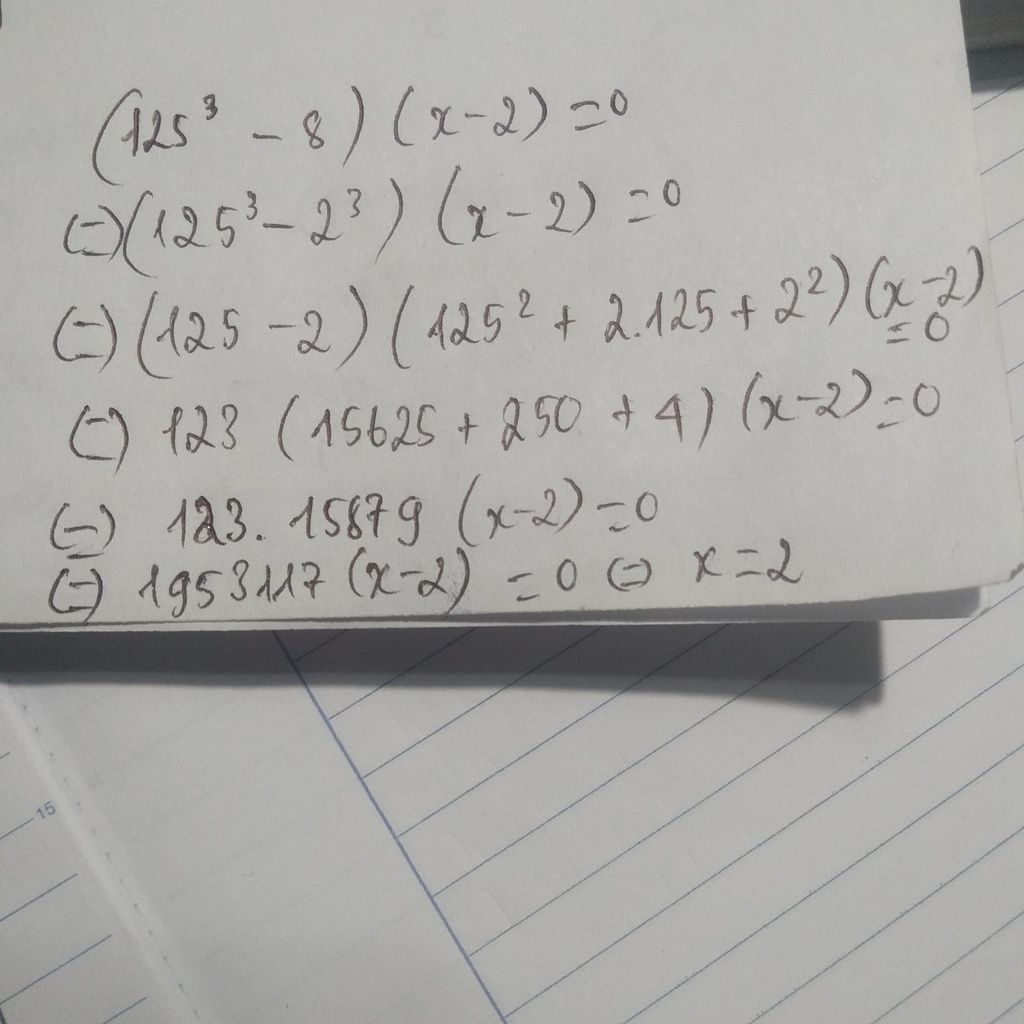 (125³ - 8) (x-2) = 0
(=) (125³ - 2³) (x-2) = 0
(=) (125 - 2) (125² + 2.125 + 2²) (x-2) = 0
(=) 123 (15625 + 250 + 4) (x-2) = 0
(=) 123. 15879 (x-2) = 0
(=) 1953117 (x-2) = 0 (=) x = 2
15